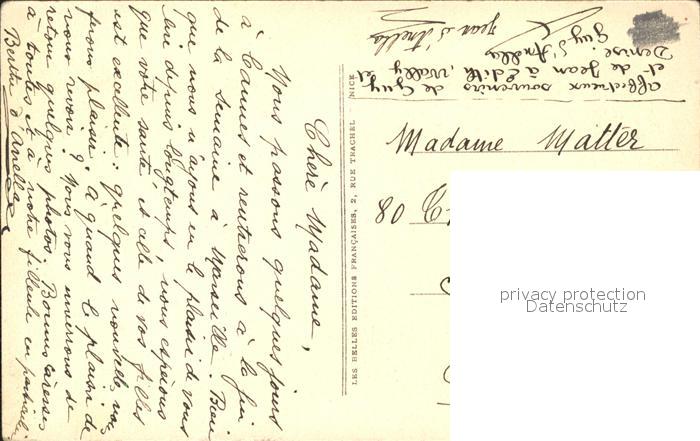 Chère Madame,
Nous passons quelques jours
à Cannes et rentrerons à la fin
de la semaine à Marseille. Bien
que nous n'ayons eu le plaisir de vous
lire depuis longtemps, nous espérons
que votre santé et celle de vos filles
est excellente. quelques nouvelles nous
feront plaisir. à quand le plaisir de
vous revoir? Nous vous enverrons de
retour quelques photos. Bonnes caresses
à toutes et à notre filleule en particulier
Berthe d'Anella
LES BELLES EDITIONS FRANÇAISES, 2, RUE TRACHEL NICE
Affectueux souvenirs de Guy
et de Jean à Edith, Wally et
Denise. Guy d'Anella
Jean d'Anella
Madame Matter
80
privacy protection
Datenschutz